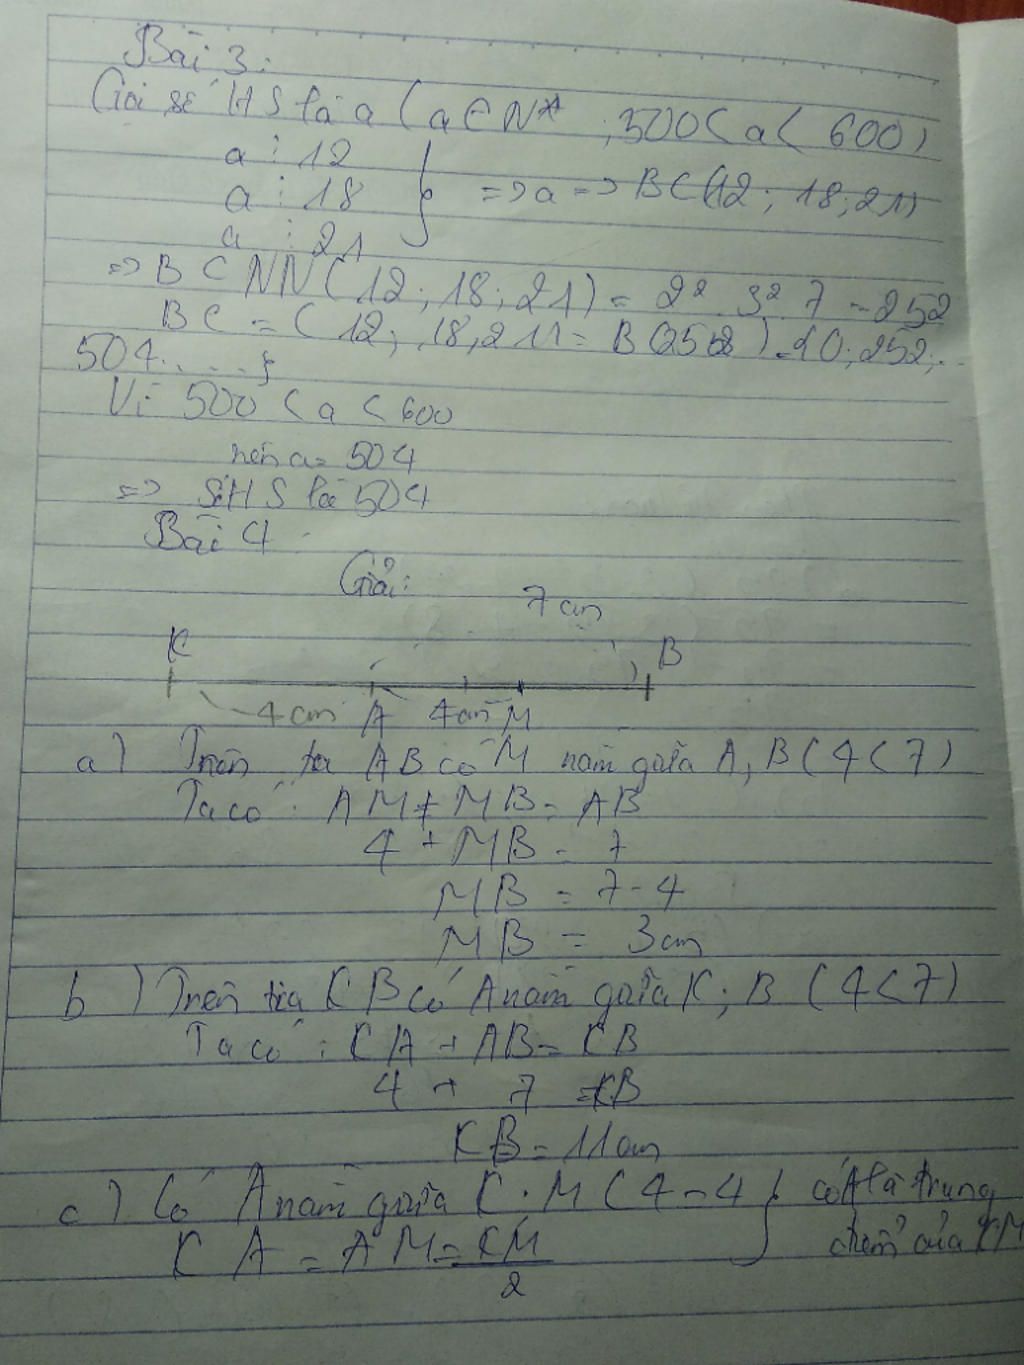 Bài 3:
Gọi số HS là a (a ∈ N* ; 500 < a < 600)
a ⋮ 12
a ⋮ 18 } => a => BC(12; 18; 21)
a ⋮ 21
=> BCNN(12; 18; 21) = 2² 3² 7 = 252
BC = (12; 18, 21) = B(252) = {0; 252;..
504.....}
Vì 500 < a < 600
nên a = 504
=> Số HS là 504
Bài 4:
Giải:
7cm
K B
4cm A 4cm M
a) Trên tia AB có M nằm giữa A, B (4 < 7)
Ta có: AM + MB = AB
4 + MB = 7
MB = 7 - 4
MB = 3cm
b) Trên tia KB có A nằm giữa K; B (4 < 7)
Ta có: KA + AB = KB
4 + 7 = KB
KB = 11cm
c) Có A nằm giữa K. M (4 = 4 } có A là trung
KA = AM = KM/2 điểm của KM